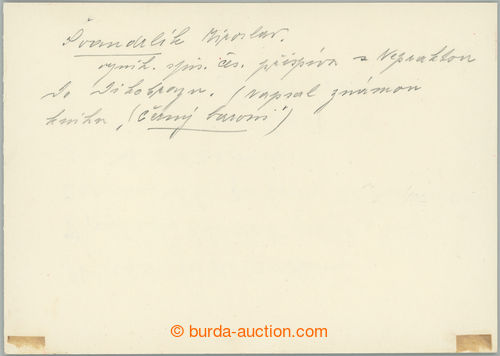 Švandrlík Miroslav.
vynik. spis. čes. přispívá s Nepraktou
do Dikobrazu. (napsal známou
knihu „Černý baroni“)
burda-auction.com